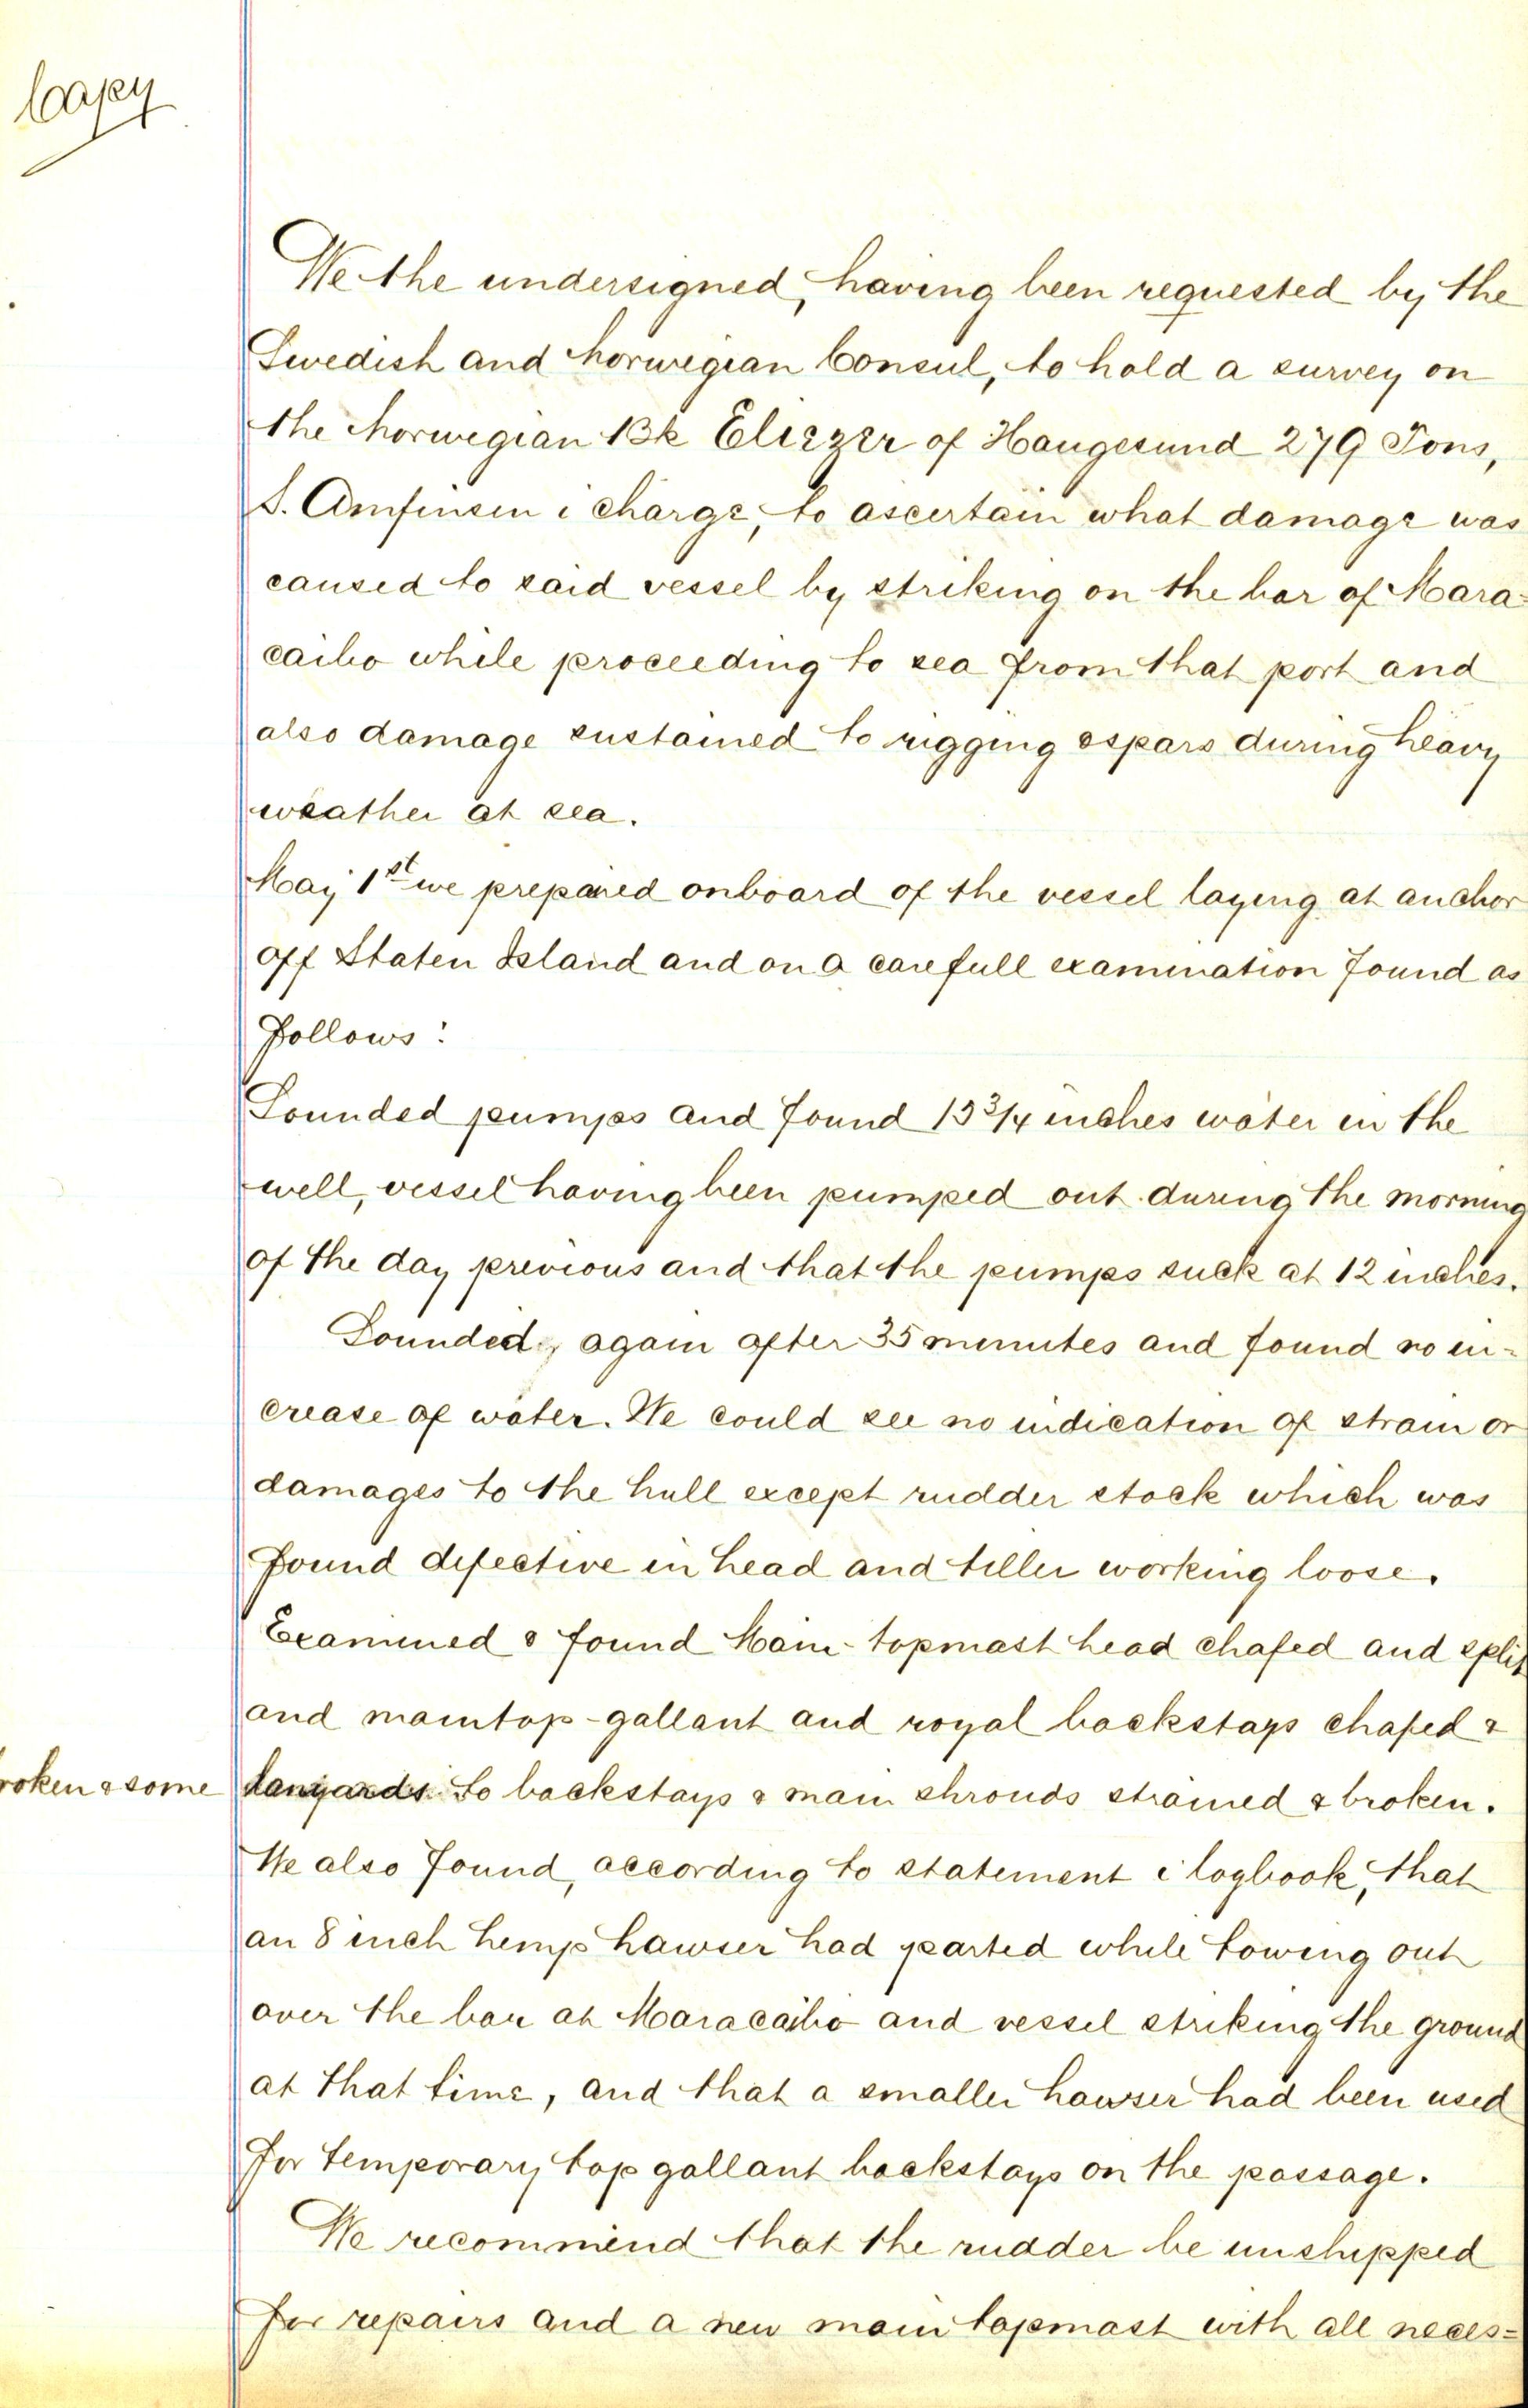 Copy
We the undersigned, having been requested by the
Swedish and Norwegian Consul, to hold a survey on
the Norwegian Bk Eliezer of Haugesund 279 Tons,
S. Amfinsen i charge, to ascertain what damage was
caused to said vessel by striking on the bar of Mara=
caibo while proceeding to sea from that port and
also damage sustained to rigging & spars during heavy
weather at sea.
May 1st we prepared onboard of the vessel laying at anchor
off Staten Island and on a carefull examination found as
follows:
Sounded pumps and found 13 3/4 inches water in the
well, vessel having been pumped out during the morning
of the day previous and that the pumps suck at 12 inches.
Sounded again after 35 minutes and found no in=
crease of water. We could see no indication of strain or
damages to the hull except rudder stock which was
found defective in head and tiller working loose.
Examined & found Main-topmast head chafed and split
and maintop-gallant and royal backstays chafed &
roken & some lanyards to backstays & main shrouds strained & broken.
We also found, according to statement i logbook, that
an 8 inch hemp hawser had parted while towing out
over the bar at Maracaibo and vessel striking the ground
at that time, and that a smaller hawser had been used
for temporary top gallant backstays on the passage.
We recommend that the rudder be unshipped
for repairs and a new main topmast with all neces=